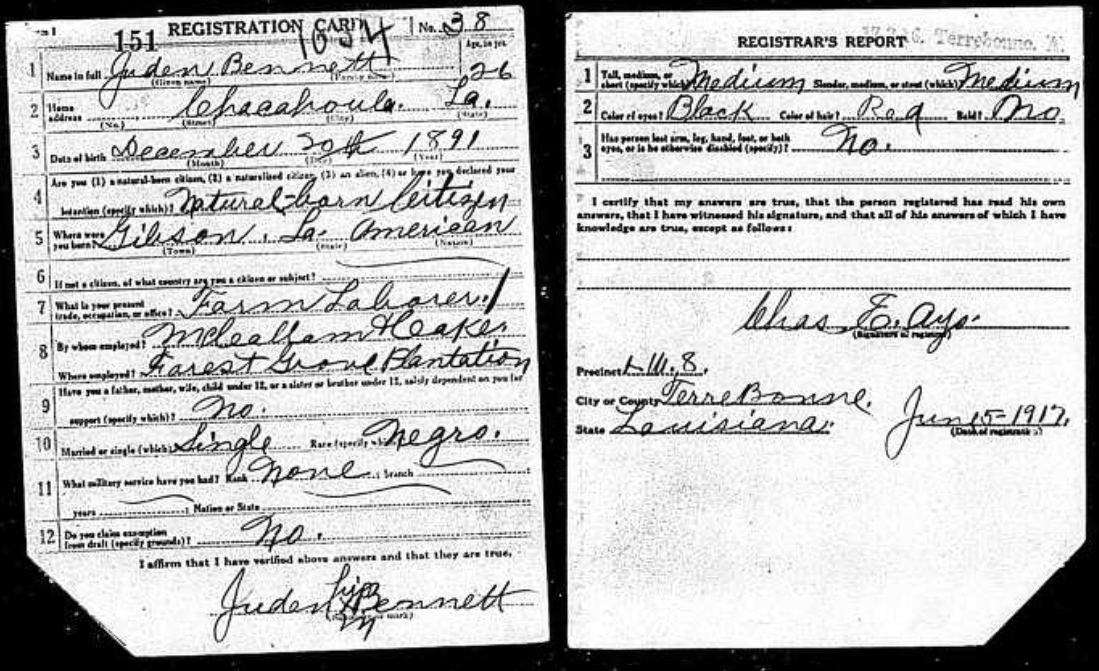 REGISTRATION CARD No. 38
151 1654
Age, in yrs.
1 Name in full Juden Bennett 26
(Given name) (Family name)
2 Home address Chacahoula. La.
(No.) (Street) (City) (State)
3 Date of birth December 20th 1891
(Month) (Day) (Year)
Are you (1) a natural-born citizen, (2) a naturalized citizen, (3) an alien, (4) or have you declared your
4 intention (specify which)? Natural-born Citizen
5 Where were you born? Gibson, La. American
(Town) (State) (Nation)
6 If not a citizen, of what country are you a citizen or subject?
7 What is your present trade, occupation, or office? Farm Laborer.
8 By whom employed?
Where employed? Forest Grove Plantation
Have you a father, mother, wife, child under 12, or a sister or brother under 12, solely dependent on you for
9 support (specify which)? No.
10 Married or single (which)? Single Race (specify which)? Negro.
11 What military service have you had? Rank None ; branch
years ; Nation or State
12 Do you claim exemption from draft (specify grounds)? No.
I affirm that I have verified above answers and that they are true.
Juden his Bennett
(Signature or mark)
REGISTRAR'S REPORT
1 Tall, medium, or short (specify which)? Medium Slender, medium, or stout (which)? Medium
2 Color of eyes? Black Color of hair? Red Bald? No
3 Has person lost arm, leg, hand, foot, or both eyes, or is he otherwise disabled (specify)? No.
I certify that my answers are true, that the person registered has read his own
answers, that I have witnessed his signature, and that all of his answers of which I have
knowledge are true, except as follows:
Chas E. Ayo.
(Signature of registrar)
Precinct 8.
City or County TerreBonne.
State Louisiana.
Jun 5-1917.
(Date of registration)